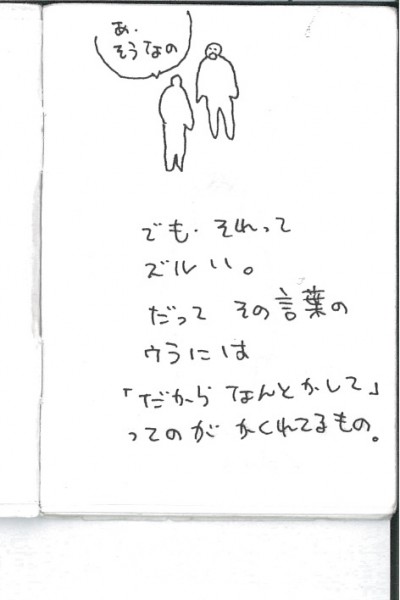 あ.
そうなの
でも.それって
ズルい。
だって その言葉の
ウラには
「だから なんとかして」
ってのが かくれてるもの。